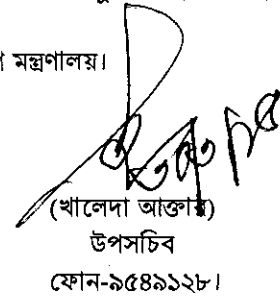 মন্ত্রণালয়।
(খালেদা আক্তার)
উপসচিব
ফোন-৯৫৪৯১২৮।